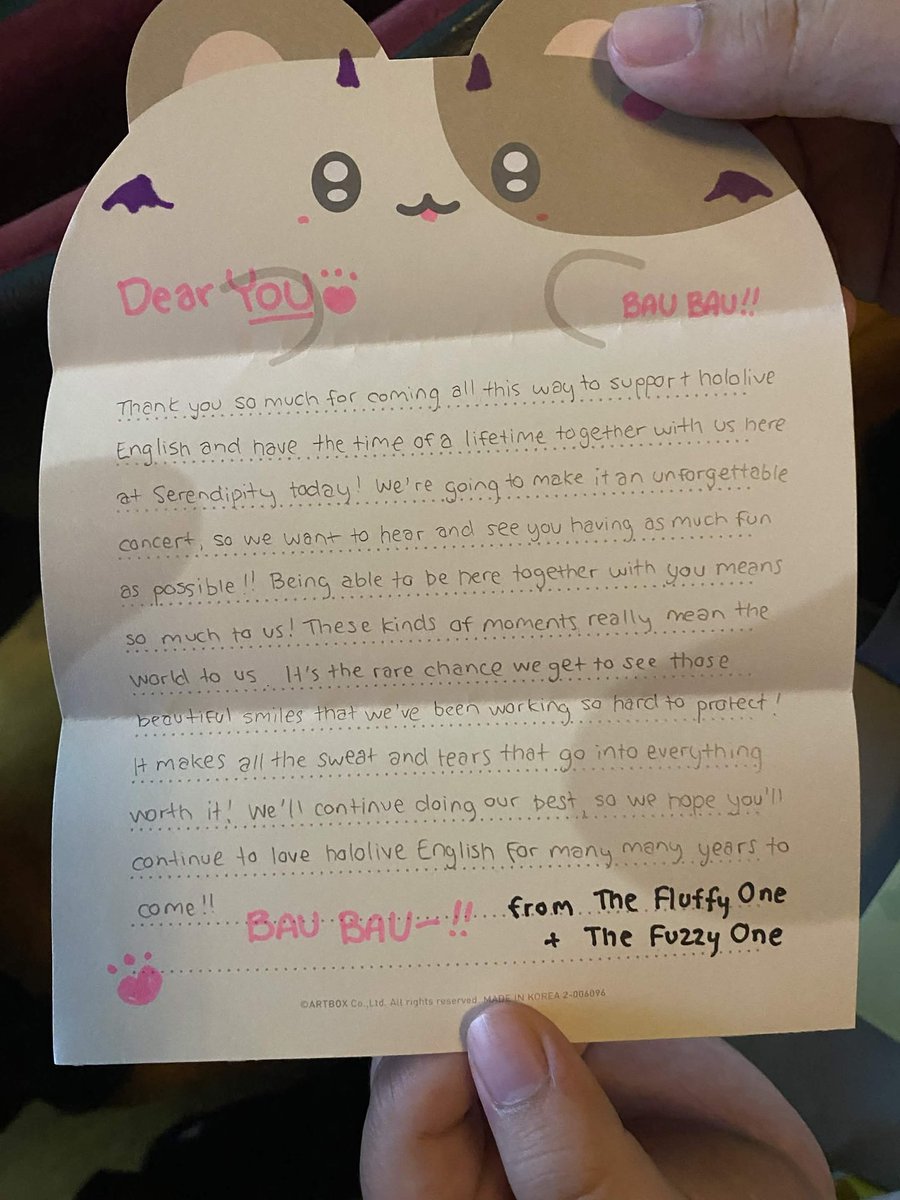 Dear YOU
BAU BAU!!
Thank you so much for coming all this way to support hololive
English and have the time of a lifetime together with us here
at Serendipity today! We're going to make it an unforgettable
concert, so we want to hear and see you having as much fun
as possible!! Being able to be here together with you means
so much to us! These kinds of moments really mean the
world to us. It's the rare chance we get to see those
beautiful smiles that we've been working so hard to protect!
It makes all the sweat and tears that go into everything
worth it! We'll continue doing our best, so we hope you'll
continue to love hololive English for many many years to
come!!
BAU BAU~!!
from The Fluffy One
+ The Fuzzy One
©ARTBOX Co.,Ltd. All rights reserved. MADE IN KOREA 2-006096